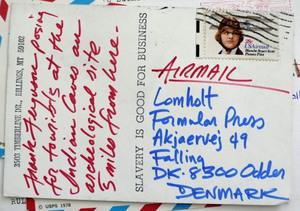 Frank Ferguson posing
for tourists at the
Indian Caves an
archeological site
5 miles from here.
3503 TIMBERLINE DR., BILLINGS, MT 59102
SLAVERY IS GOOD FOR BUSINESS
© USPS 1978
USAirmail
AIRMAIL
Lomholt
Formular Press
Akjaervej 49
Falling
DK-8300 Odder
DENMARK